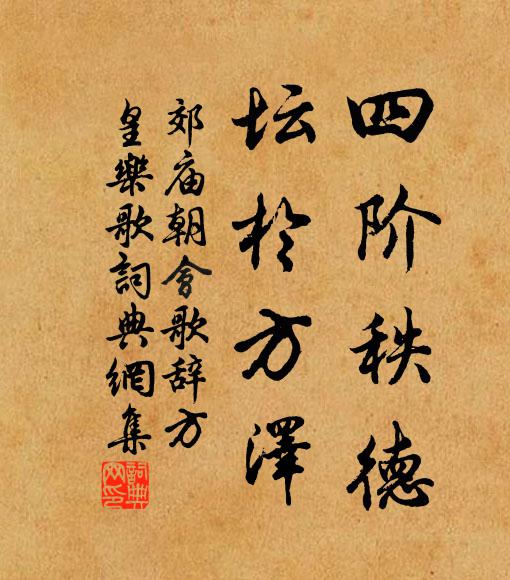 四阶秩德
坛於方澤
郊庙朝會歌辞方
皇樂歌詞典網集
詞典網印